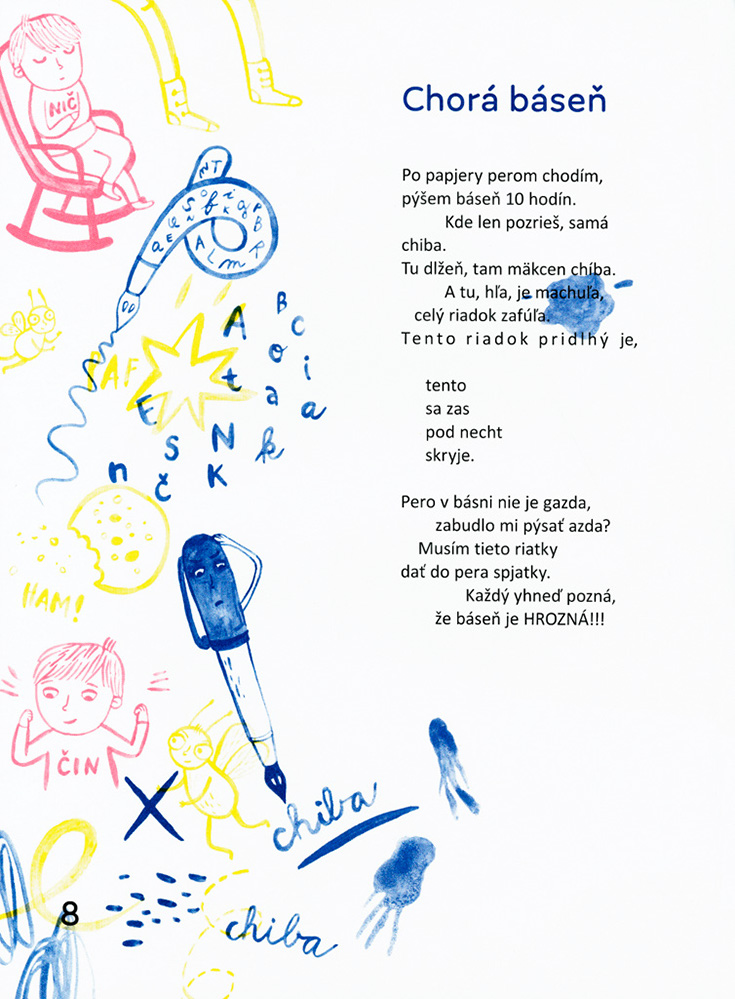 Chorá báseň
Po papjery perom chodím,
pýšem báseň 10 hodín.
Kde len pozrieš, samá
chiba.
Tu dlžeň, tam mäkcen chíba.
A tu, hľa, je machuľa,
celý riadok zafúľa.
Tento riadok pridlhý je,
tento
sa zas
pod necht
skryje.
Pero v básni nie je gazda,
zabudlo mi pýsať azda?
Musím tieto riatky
dať do pera spjatky.
Každý yhneď pozná,
že báseň je HROZNÁ!!!
NIČ
PAF
A B C
o i
t a a
E S N k
n Č K
HAM!
ČIN
chiba
chiba
8